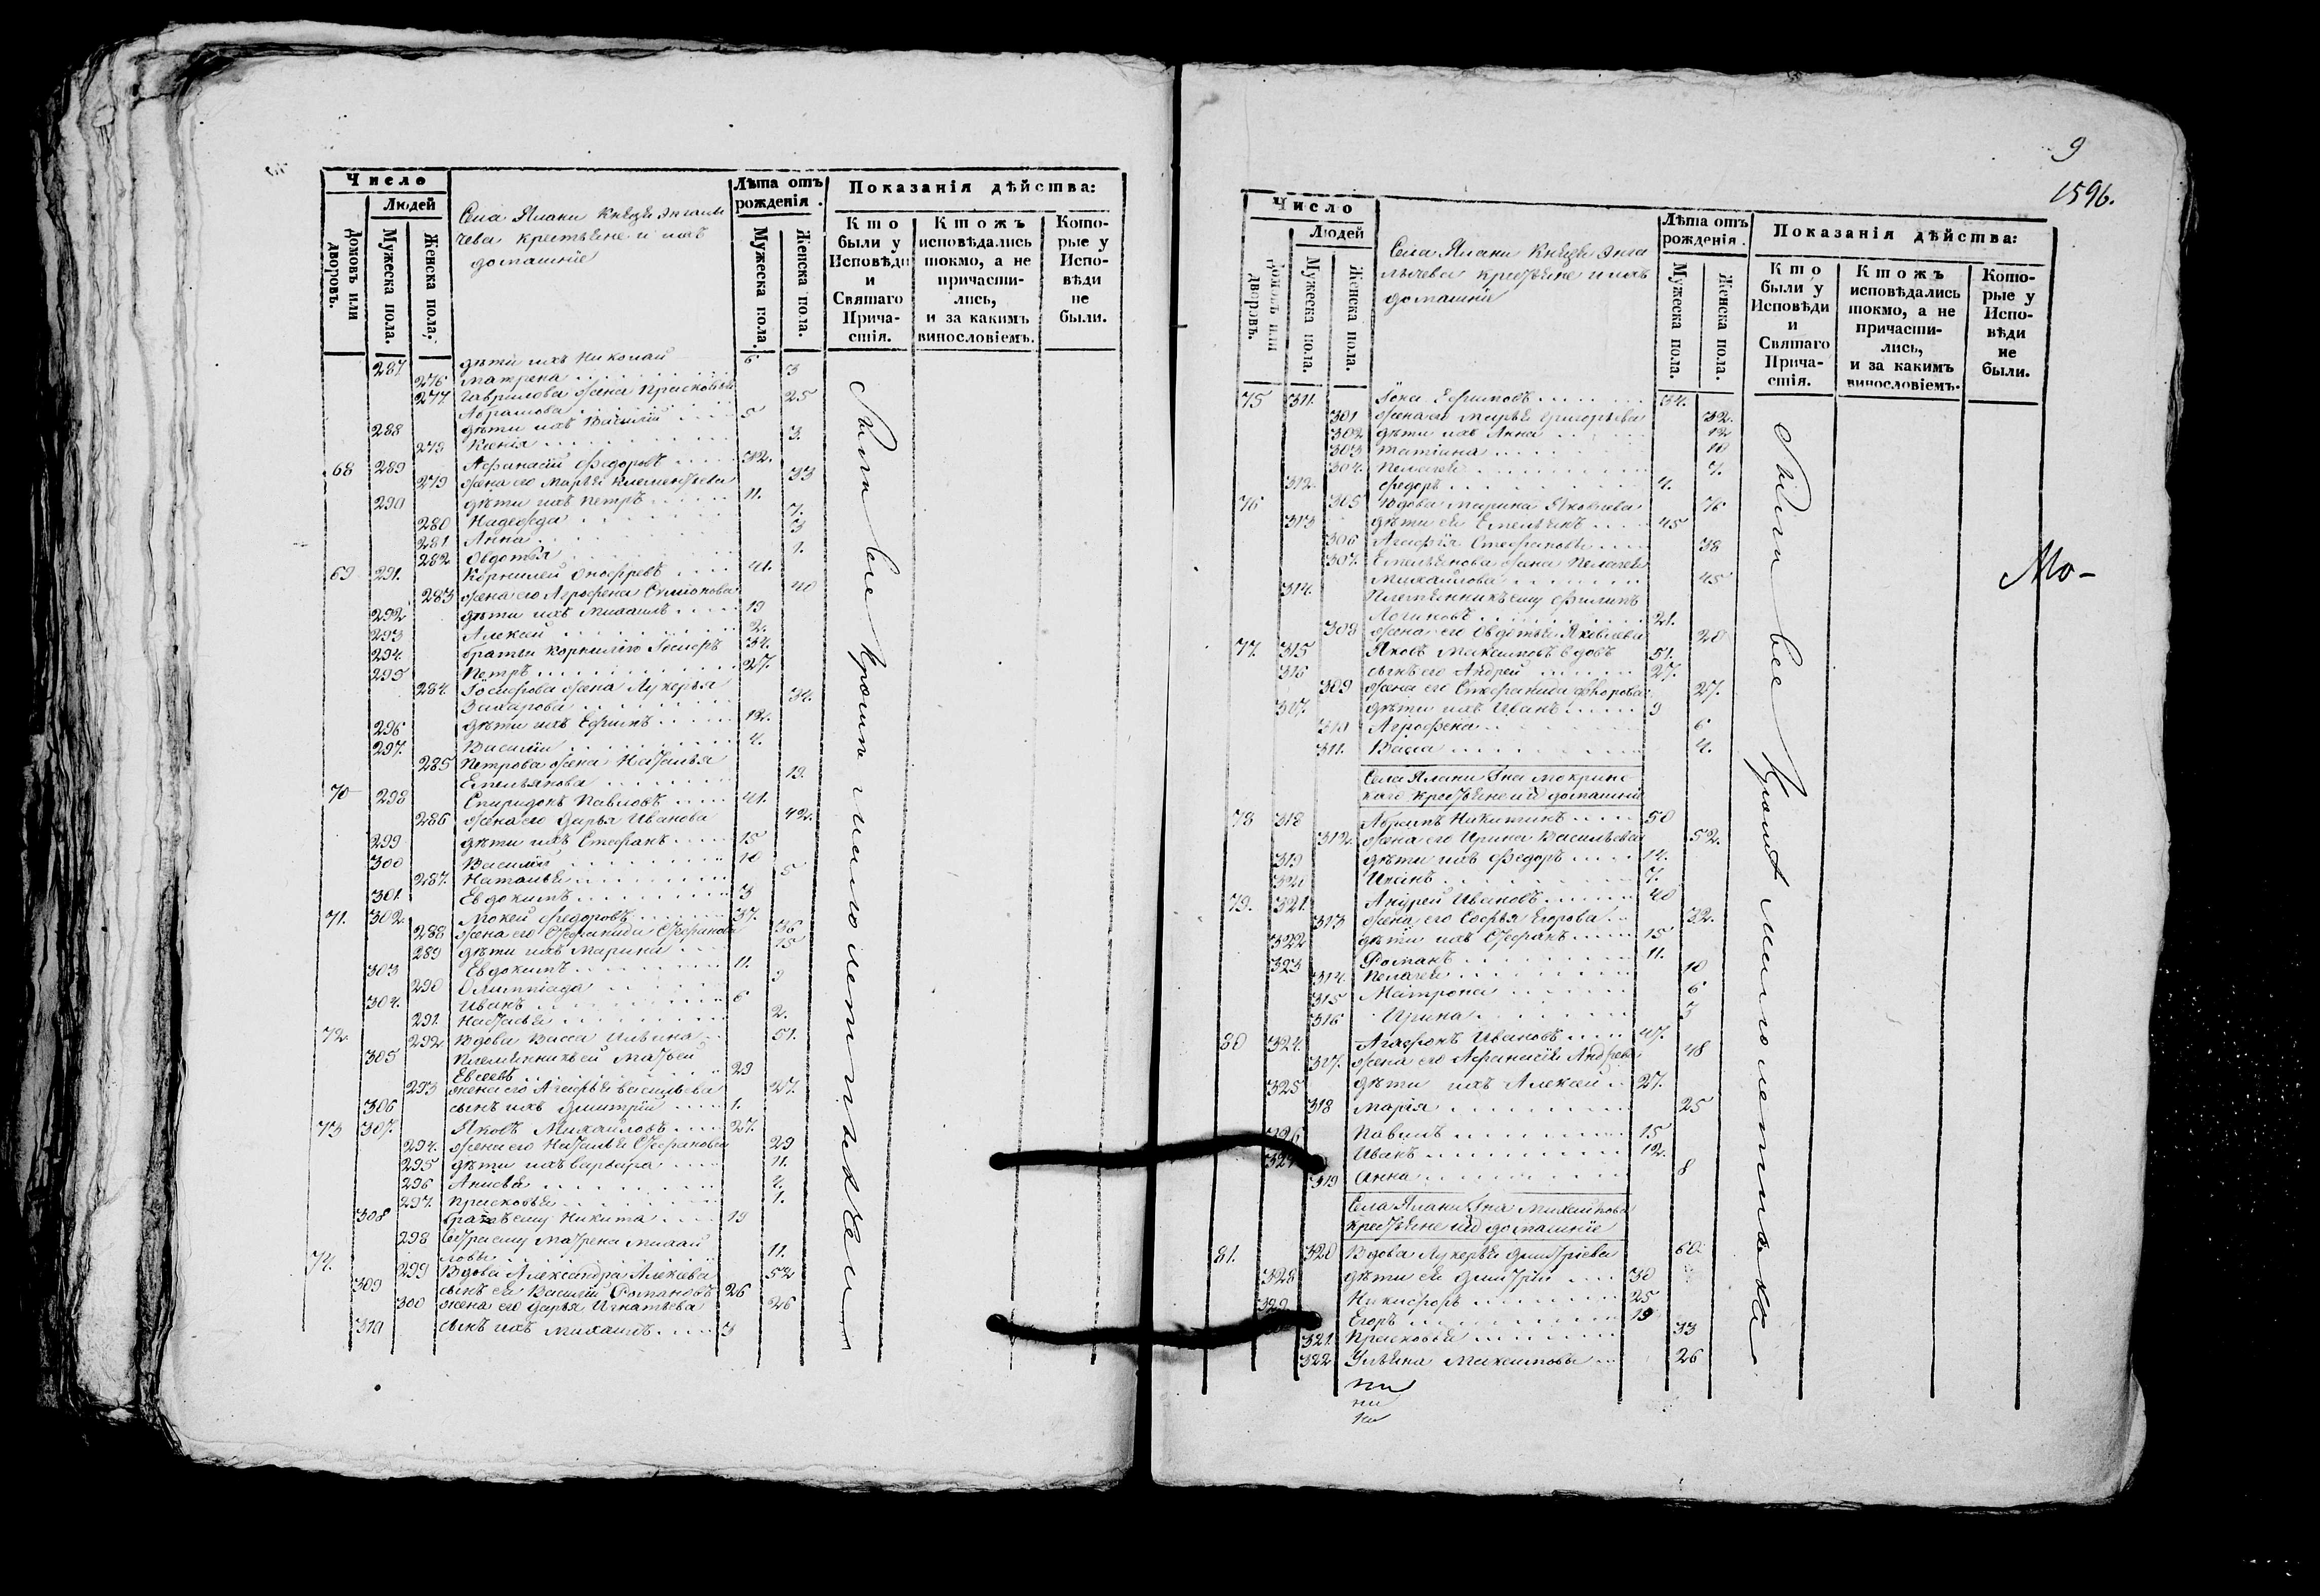 Число
Людей
домовъ или дворовъ.
Мужеска пола.
Женска пола.
Села Ялани Князя Энгалы
чева крестьяне и ихъ
домашніе
Лѣта отъ рожденія.
Мужеска пола.
Женска пола.
Показанія дѣйства:
Кто были у Исповѣди и Святаго Причастія.
Ктожъ исповѣдались токмо, а не причастились, и за какимъ винословіемъ.
Которые у Исповѣди не были.
287 дѣти ихъ Николай 6
276 Матрена 3
277 Гаврилова жена Прасковья
Абрамова 25
288 дѣти ихъ Василій 5
279 Ксенія 3
68 289 Афанасій Федоровъ 32.
279 жена его Марья Клементьева 33
290 дѣти ихъ Петръ 11.
280 Надежда 7.
281 Анна 3
282 Овдотья 1.
69 291. Корнилей Онофревъ 41.
283 жена его Агрофена Симіонова 40
292 дѣти ихъ Михаилъ 19
293 Алексей 2.
294. братья Корнилею Іосифъ 34.
295 Петръ 27.
284. Іосифова жена Лукерья
Захарова 34.
296 дѣти ихъ Ефимъ 12.
297. Василій 4.
285 Петрова жена Наталья
Емельянова 19.
70 298 Спиридонъ Павловъ 41.
286 жена его Дарья Иванова 42.
299 дѣти ихъ Стефанъ 15
300 Василій 10
287. Наталья 5
301. Евдокимъ 3
71. 302. Мокей Федоровъ 37.
288 жена его Стефанида Стефанова 36
289 дѣти ихъ Марина 15
303 Евдокимъ 11.
290 Олимпіада 9
304. Иванъ 6
291. Наталья 2.
72. 292 Вдова Васса Ильина 51.
305 Племянникъ ей Матвей
Евсеевъ 29
293 жена его Агафья Васильева 27.
306 сынъ ихъ Дмитрій 1.
73 307. Яковъ Михайловъ 27.
294. жена его Наталья Стефанова 29
295 дѣти ихъ Варвара 11.
296 Анисья 4.
297. Прасковья 1.
308 братъ ему Никита 19
298 Сестра ему Матрена Михай
лова 11.
74. 299 Вдова Александра Алексеева 52
309 сынъ ея Василій Романовъ 26
300 жена его Дарья Игнатьева 26
310 сынъ ихъ Михаилъ 3
были все кроме малолетнихъ
9
1596.
Число
Людей
домовъ или дворовъ.
Мужеска пола.
Женска пола.
Села Ялани Князя Энга
лычева крестьяне и ихъ
домашніе
Лѣта отъ рожденія.
Мужеска пола.
Женска пола.
Показанія дѣйства:
Кто были у Исповѣди и Святаго Причастія.
Ктожъ исповѣдались токмо, а не причастились, и за какимъ винословіемъ.
Которые у Исповѣди не были.
75 311. Фока Ефимовъ 34.
301 жена его Марья Григорьева 32.
302 дѣти ихъ Анна 12
303 Татіана 10
304. Пелагея 7.
312. Федоръ 4.
76 305 Вдова Марина Яковлева 76
313 дѣти ея Емельянъ 45
306 Агафія Стефанова 38
307. Емельянова жена Пелагея
Михайлова 45
314. Племянникъ ему Филипъ
Логиновъ 21.
308 жена его Овдотья Яковлева 20
77. 315 Яковъ Максимовъ вдовъ 51.
316 сынъ его Андрей 27.
309 жена его Стефанида 27.
317. дѣти ихъ Иванъ 9
310 Агрофена 6
311. Васса 4.
Села Ялани Гна Мокринс
каго крестьяне и ихъ домашніе
78 318 Абрамъ Никитинъ 50
312. жена его Ирина Васильева 52.
319 дѣти ихъ Федоръ 14.
320 7.
79. 321. Андрей Ивановъ 40
313 жена его Софья Егорова 32.
322 дѣти ихъ Стефанъ 15
323 Романъ 11.
314. Пелагея 10
315 Матрона 6
316 Ирина 3
80 324. Агафонъ Ивановъ 47.
317. жена его Афанасія Андреева 48
325 дѣти ихъ Алексей 27.
318 Марія 25
326 Павелъ 15
327 Иванъ 12.
319 Анна 8
Села Ялани Гна
крестьяне и ихъ домашніе
81. 320 Вдова Лукерья Дмитріева 60
328 дѣти ея Дмитрій 30
329 Никифоръ 25
Егоръ 19
321. Прасковья 33
322 Ульяна 26
были все кроме малолетнихъ
Мо-